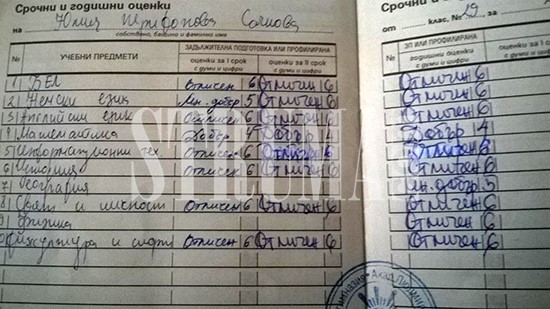 Срочни и годишни оценки
на Юлия Трифонова
собствено, бащино и фамилно име
№ УЧЕБНИ ПРЕДМЕТИ ЗАДЪЛЖИТЕЛНА ПОДГОТОВКА ИЛИ ПРОФИЛИРАНА
оценки за I срок с думи и цифри оценки за II срок с думи и цифри
1 БЕЛ Отличен 6 Отличен 6
2 Немски език Мн. добър 5 Отличен 6
3 Английски език Отличен 6 Отличен 6
4 Математика Добър 4 Добър 4
5 Информационни тех. Отличен 6 Отличен 6
6 История
7 География
8 Свят и личност Отличен 6 Отличен 6
9 Физика
Физкултура и спорт Отличен 6 Отличен 6
Срочни и годишни оценки
от клас, №
№ ЗП ИЛИ ПРОФИЛИРАНА
годишни оценки с думи и цифри
Отличен 6
Отличен 6
Отличен 6
Добър 4
Отличен 6
Отличен 6
Мн. добър 5
Отличен 6
Отличен 6
Отличен 6